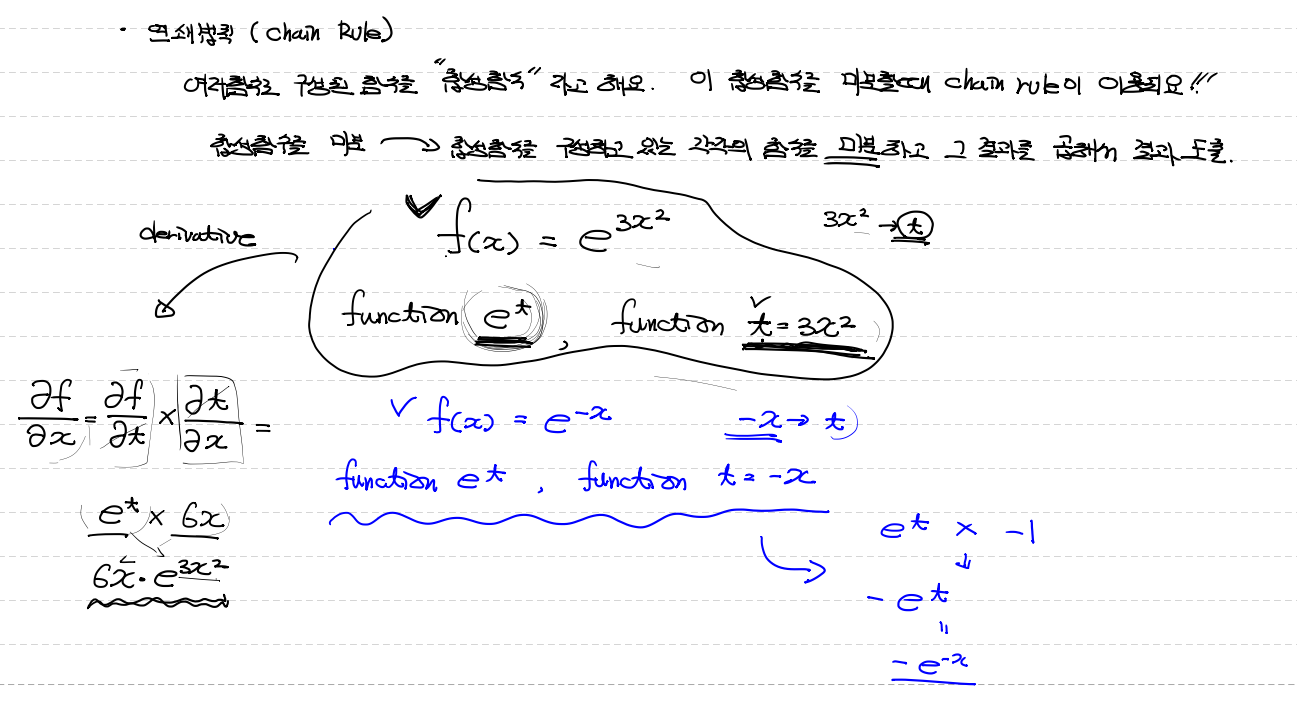 · 연쇄법칙 (Chain Rule)
여러함수로 구성된 함수를 "합성함수" 라고 해요. 이 합성함수를 미분할때 chain rule이 이용되요!!!
합성함수를 미분 → 합성함수를 구성하고 있는 각각의 함수를 미분하고 그 결과를 곱해서 결과 도출.
derivative
f(x) = e^{3x²}
3x² → t
function e^t, function t = 3x²
∂f/∂x = ∂f/∂t × ∂t/∂x =
e^t × 6x
6x · e^{3x²}
f(x) = e^{-x}
-x → t
function e^t , function t = -x
e^t × -1
↓
- e^t
"
- e^{-x}